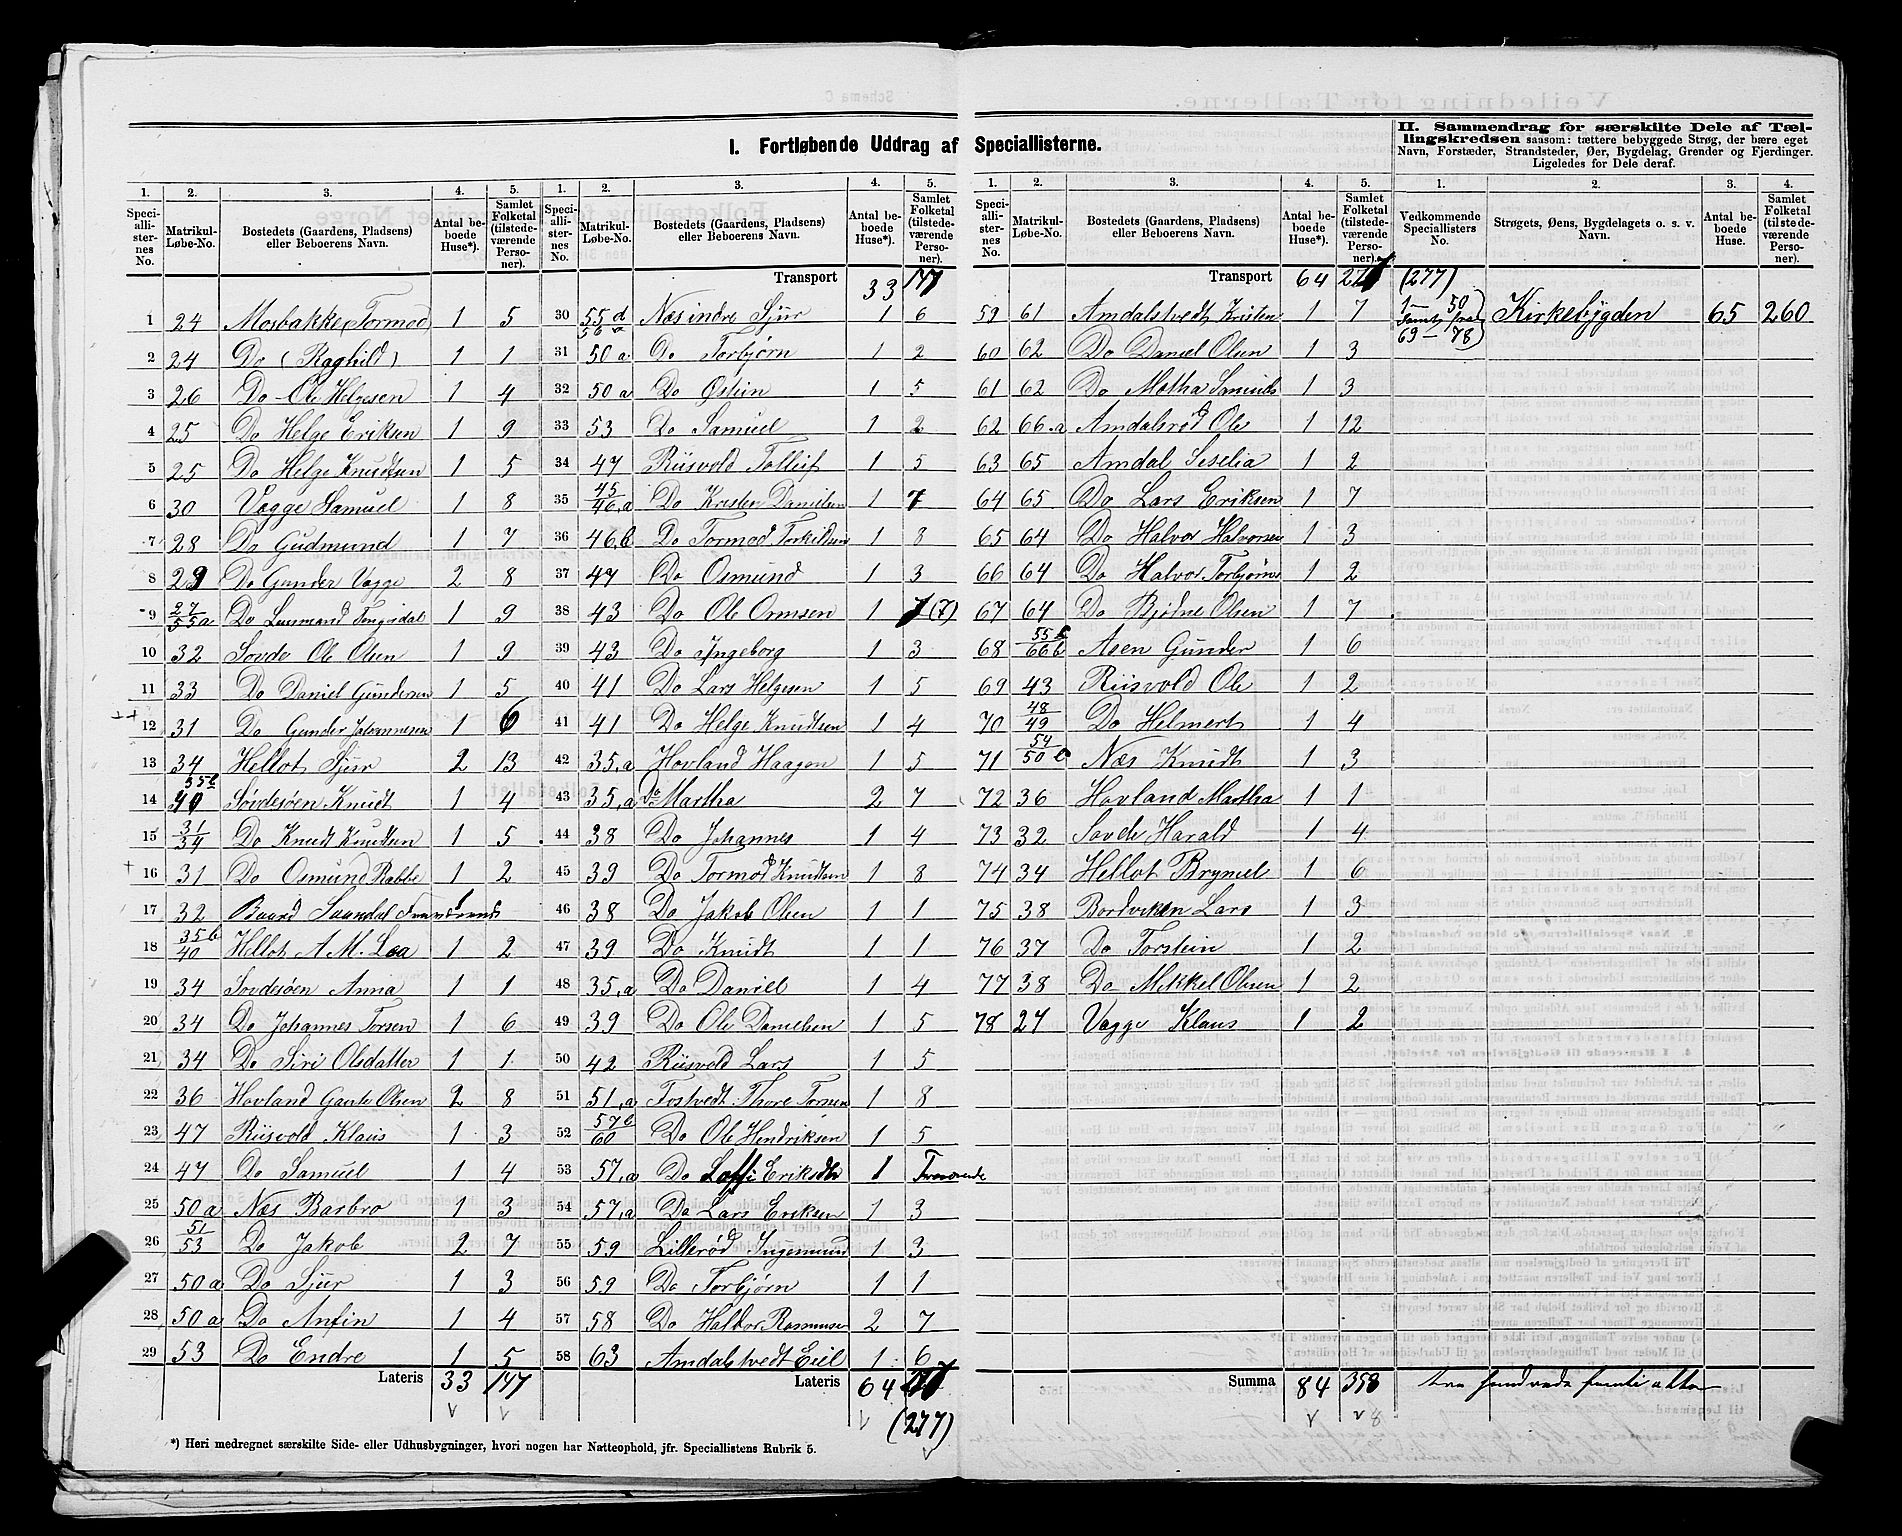 I. Fortløbende Uddrag af Speciallisterne.
II. Sammendrag for særskilte Dele af Tællingskredsen saasom: tættere bebyggede Strøg, der bære eget Navn, Forstæder, Strandsteder, Øer, Bygdelag, Grender og Fjerdinger. Ligeledes for Dele deraf.
1. 2. 3. 4. 5. 1. 2. 3. 4. 5. 1. 2. 3. 4. 5. 1. 2. 3. 4.
Speciallisternes No. Matrikul-Løbe-No. Bostedets (Gaardens, Pladsens) eller Beboerens Navn. Antal beboede Huse*). Samlet Folketal (tilstedeværende Personer).
Speciallisternes No. Matrikul-Løbe-No. Bostedets (Gaardens, Pladsens) eller Beboerens Navn. Antal beboede Huse*). Samlet Folketal (tilstedeværende Personer).
Speciallisternes No. Matrikul-Løbe-No. Bostedets (Gaardens, Pladsens) eller Beboerens Navn. Antal beboede Huse*). Samlet Folketal (tilstedeværende Personer).
Vedkommende Speciallisters No. Strøgets, Øens, Bygdelagets o. s. v. Navn. Antal beboede Huse. Samlet Folketal (tilstedeværende Personer).
1 24 Mosbakke, Tormod 1 5
2 24 Do (Raghild) 1 1
3 26 Do Ole Helgesen 1 4
4 25 Do Helge Eriksen 1 9
5 25 Do Helge Knudsen 1 5
6 30 Vagge Samuel 1 8
7 28 Do Gudmund 1 7
8 29 Do Gunder Vagge 2 8
9 27/55a Do 1 9
10 32 Sovde Ole Olsen 1 9
11 33 Do Daniel Gundersen 1 5
12 31 Do Gunder Johannesen 1 6
13 34 Hellot Sjur 2 13
14 Søvdesøen Knudt 1 4
15 31/34 Do Knudt Knudsen 1 5
16 31 Do Osmund Rabbe 1 2
17 32 Baard
18 35b/40 Hellot A M. Loa 1 2
19 34 Sovdesøen Anna 1 1
20 34 Do Johannes Torsen 1 6
21 34 Do Siri Olsdatter 1 1
22 36 Hovland Gaute Olsen 2 8
23 47 Riisvold Klaus 1 3
24 47 Do Samuel 1 4
25 50a Næs Barbro 1 3
26 51/53 Do Jakob 2 7
27 50a Do Sjur 1 3
28 50a Do Anfin 1 4
29 53 Do Endre 1 5
Lateris 33 147
Transport 33 147
30 55d 56a Næs indre Sjur 1 6
31 50a Do Torbjørn 1 2
32 50a Do Østein 1 5
33 53 Do Samuel 1 2
34 47 Riisvold Tolleif 1 5
35 45/46,a Do Kristen Danielsen 1 7
36 46,b Do Tormod Torkildsen 1 8
37 47 Do Osmund 1 3
38 43 Do Ole Ormsen 1 7 (7)
39 43 Do Ingeborg 1 3
40 41 Do Lars Helgesen 1 5
41 41 Do Helge Knudtsen 1 4
42 35,a Hovland Haagen 1 5
43 35,a Do Martha 2 7
44 38 Do Johannes 1 4
45 39 Do Tormod Knudtsen 1 8
46 38 Do Jakob Olsen 1 1
47 39 Do Knudt 1 1
48 35,a Do Daniel 1 4
49 39 Do Ole Danielsen 1 5
50 42 Riisvold Lars 1 5
51 51,a Tostvedt Thore Torsen 1 8
52 57b/60 Do Ole Hendriksen 1 5
53 57,a Do Eriksdtr 1
54 57,a Do Lars Eriksen 1 3
55 59 Lillerød Ingemund 1 3
56 59 Do Torbjørn 1 1
57 58 Do Halvor Rasmusen 2 7
58 63 Amdalstvedt Eiel 1 6
Lateris 64
(277)
Transport 64 (277)
59 61 Amdalstvedt Kristen 1 7
60 62 Do Daniel Olsen 1 3
61 62 Do Motha Samuels 1 3
62 66.a Amdalsrød Ole 1 12
63 65 Amdal Seselia 1 2
64 65 Do Lars Eriksen 1 7
65 64 Do Halvor Halvorsen 1 3
66 64 Do Halvor Torbjørns 1 2
67 64 Do Bjødne Olsen 1 7
68 Asen Gunder 1 6
69 43 Riisvold Ole 1 2
70 48/49 Do Helmert 1 4
71 54/50 b Næs Knudt 1 3
72 36 Hovland Martha 1 1
73 32 Sovde Harald 1 4
74 34 Hellot Brynel 1 6
75 38 Bordviken Lars 1 3
76 37 Do Torstein 1 2
77 38 Do Mikkel Olsen 1 2
78 27 Vagge Klaus 1 2
Summa 84 358
1 – 50 samt fra 69 – 78 Kirkebygden 65 260
tre hundrede femti otte
*) Heri medregnet særskilte Side- eller Udhusbygninger, hvori nogen har Natteophold, jfr. Speciallistens Rubrik 5.